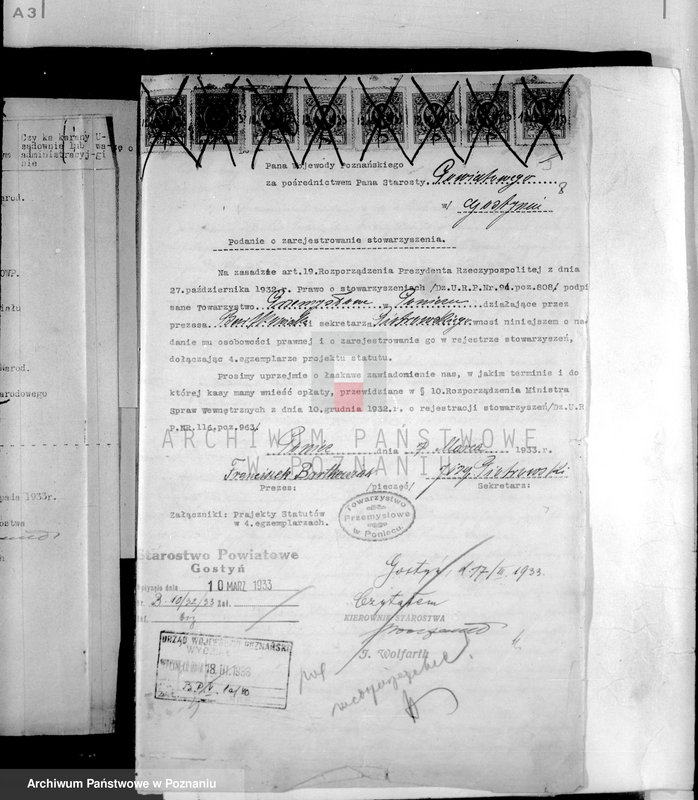 A3
Czy ka karany U-
sądownie lub wa-
administracyj-
nie
szę o
gi
arod.
OWP.
iału
arod.
arodowego
opada 1933r.
ostwa
Pana Wojewody Poznańskiego
za pośrednictwem Pana Starosty Powiatowego
8
w/ Gostyniu
Podanie o zarejestrowanie stowarzyszenia.
Na zasadzie art.19.Rozporządzenia Prezydenta Rzeczypospolitej z dnia
27.października 1932.r. Prawo o stowarzyszeniach /Dz.U.R.P.Nr.94.poz.808/ podpi
sane Towarzystwo Przemysłowe w Poniecu działające przez
prezesa i sekretarza Piotrowskiego wnosi niniejszem o na-
danie mu osobowości prawnej i o zarejestrowanie go w rejestrze stowarzyszeń,
dołączając 4.egzemplarze projektu statutu.
Prosimy uprzejmie o łaskawe zawiadomienie nas, w jakim terminie i do
której kasy mamy wnieść opłaty, przewidziane w § 10.Rozporządzenia Ministra
Spraw Wewnętrznych z dnia 10.grudnia 1932.r, o rejestracji stowarzyszeń/Dz.U.R
P.NR.116.poz.963/
ARCHIWUM PAŃSTWOWE
W POZNANIU
Poniec dnia 7 Marca 1933.r.
Franciszek
Prezes:
/pieczęć/
Jerzy Piotrowski
Sekretarz:
Towarzystwo
Przemysłowe
w Poniecu.
Załączniki: Prajekty Statutów
w 4.egzemplarzach.
Starostwo Powiatowe
Gostyń
Wpłynęło dnia 10 MARZ 1933
Nr. B-10/32/33 Zał.
Ref.
Gostyń, d. 17/III. 1933.
Czytałem
KIEROWNIK STAROSTWA
J. Wolfarth
URZĄD WOJEWÓDZKI POZNAŃSKI
18.III.1933
Archiwum Państwowe w Poznaniu